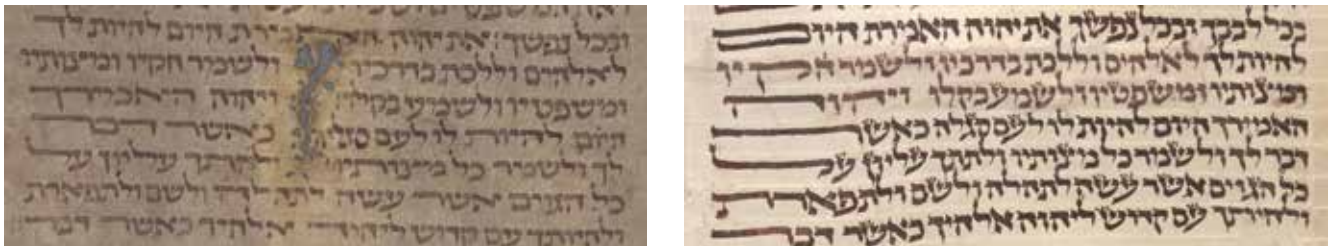 ובכל נפשך את יהוה האמירת היום להיות לך
לאלהים וללכת בדרכיו ולשמר חקיו ומצותיו
ומשפטיו ולשמע בקלו ויהוה האמירך
היום להיות לו לעם סגלה כאשר דבר
לך ולשמר כל מצותיו ולתתך עליון על
כל הגוים אשר עשה לתהלה ולשם ולתפארת
ולהיותך עם קדוש ליהוה אלהיך כאשר דבר
בכל לבבך ובכל נפשך את יהוה האמירת היום
להיות לך לאלהים וללכת בדרכיו ולשמר חקיו
ומצותיו ומשפטיו ולשמע בקלו ויהוה
האמירך היום להיות לו לעם סגלה כאשר
דבר לך ולשמר כל מצותיו ולתתך עליון על
כל הגוים אשר עשה לתהלה ולשם ולתפארת
ולהיתך עם קדוש ליהוה אלהיך כאשר דבר